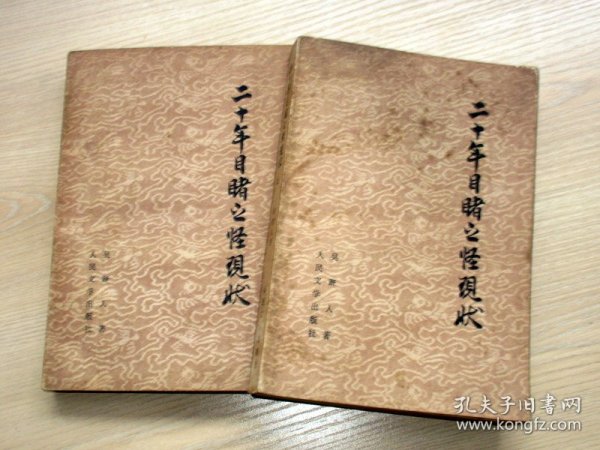 二十年目睹之怪现状
吴趼人著
人民文学出版社
二十年目睹之怪现状
吴趼人著
人民文学出版社
孔夫子旧书网
www.kongfz.com